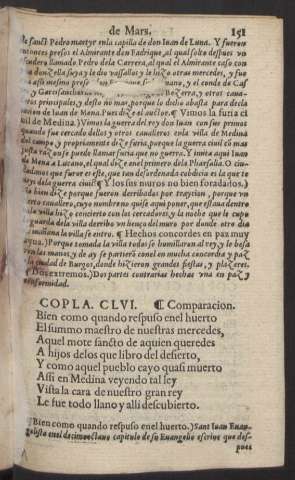 de Mars. 151
de sanct Pedro martyr enla capilla de don Iuan de Luna. Y fueron
entonces presos el Almirante don Fadrique, al qual solto despues vn
escudero llamado Pedro dela Carrera, al qual el Almirante caso con
vna donzella suya y le dio vassallos y le hizo otras mercedes, y fue
assi mesmo preso y el conde de Cas
y Garcisanchez Bezerra, y otros caua
lleros principales, y desto no mas, porque lo dicho abasta para decla
racion de Iuan de Mena. Pues dize el auctor. ¶ Vimos la furia ci
uil de Medina.) Vimos la guerra del rey don Iuan con sus primos
quando fue cercado dellos y otros caualleros enla villa de Medina
del campo y propriamente dize furia, porque la guerra ciuil cõ mas
justa razõ se puede llamar furia que no guerra. Y imita aqui Iuan
de Mena a Lucano, el qual dize enel primero dela Pharsalia. O ciu-
dadanos que furor es este, que tan desordenada cobdicia es la que te
neys dela guerra ciuil ¶ Y los sus muros no bien foradados.)
No bien dize porque fueron derribados por traycion, porque vn
cierto cauallero, cuyo nombre no quise aqui poner, que estaua dentro
la villa hizo concierto con los cercadores, y la noche que le cupo
guarda dela villa derribo vn lienço del muro por donde otro dia
mañana la villa se entro. ¶ Hechos concordes en paz muy
ayna.) Porque tomada la villa todos se humillaron al rey, y le besa
ron las manos, y de ay se partierõ conel en mucha concordia y paz
la ciudad de Burgos, donde hizieron grandes fiestas, y plazeres.
¶ Dos extremos.) Dos partes contrarias hechas vna en paz y
conformidad.
COPLA. CLVI. ¶ Comparacion.
Bien como quando respuso enel huerto
El summo maestro de nuestras mercedes,
Aquel mote sancto de aquien queredes
A hijos delos que libro del desierto,
Y como aquel pueblo cayo quasi muerto
Assi en Medina veyendo tal ley
Vista la cara de nuestro gran rey
Le fue todo llano y alli descubierto.
Bien como quando respuso enel huerto.) Sant Iuan Euan-
gelista enel decimooctauo capitulo de su Euangelio escriue que des-
pues